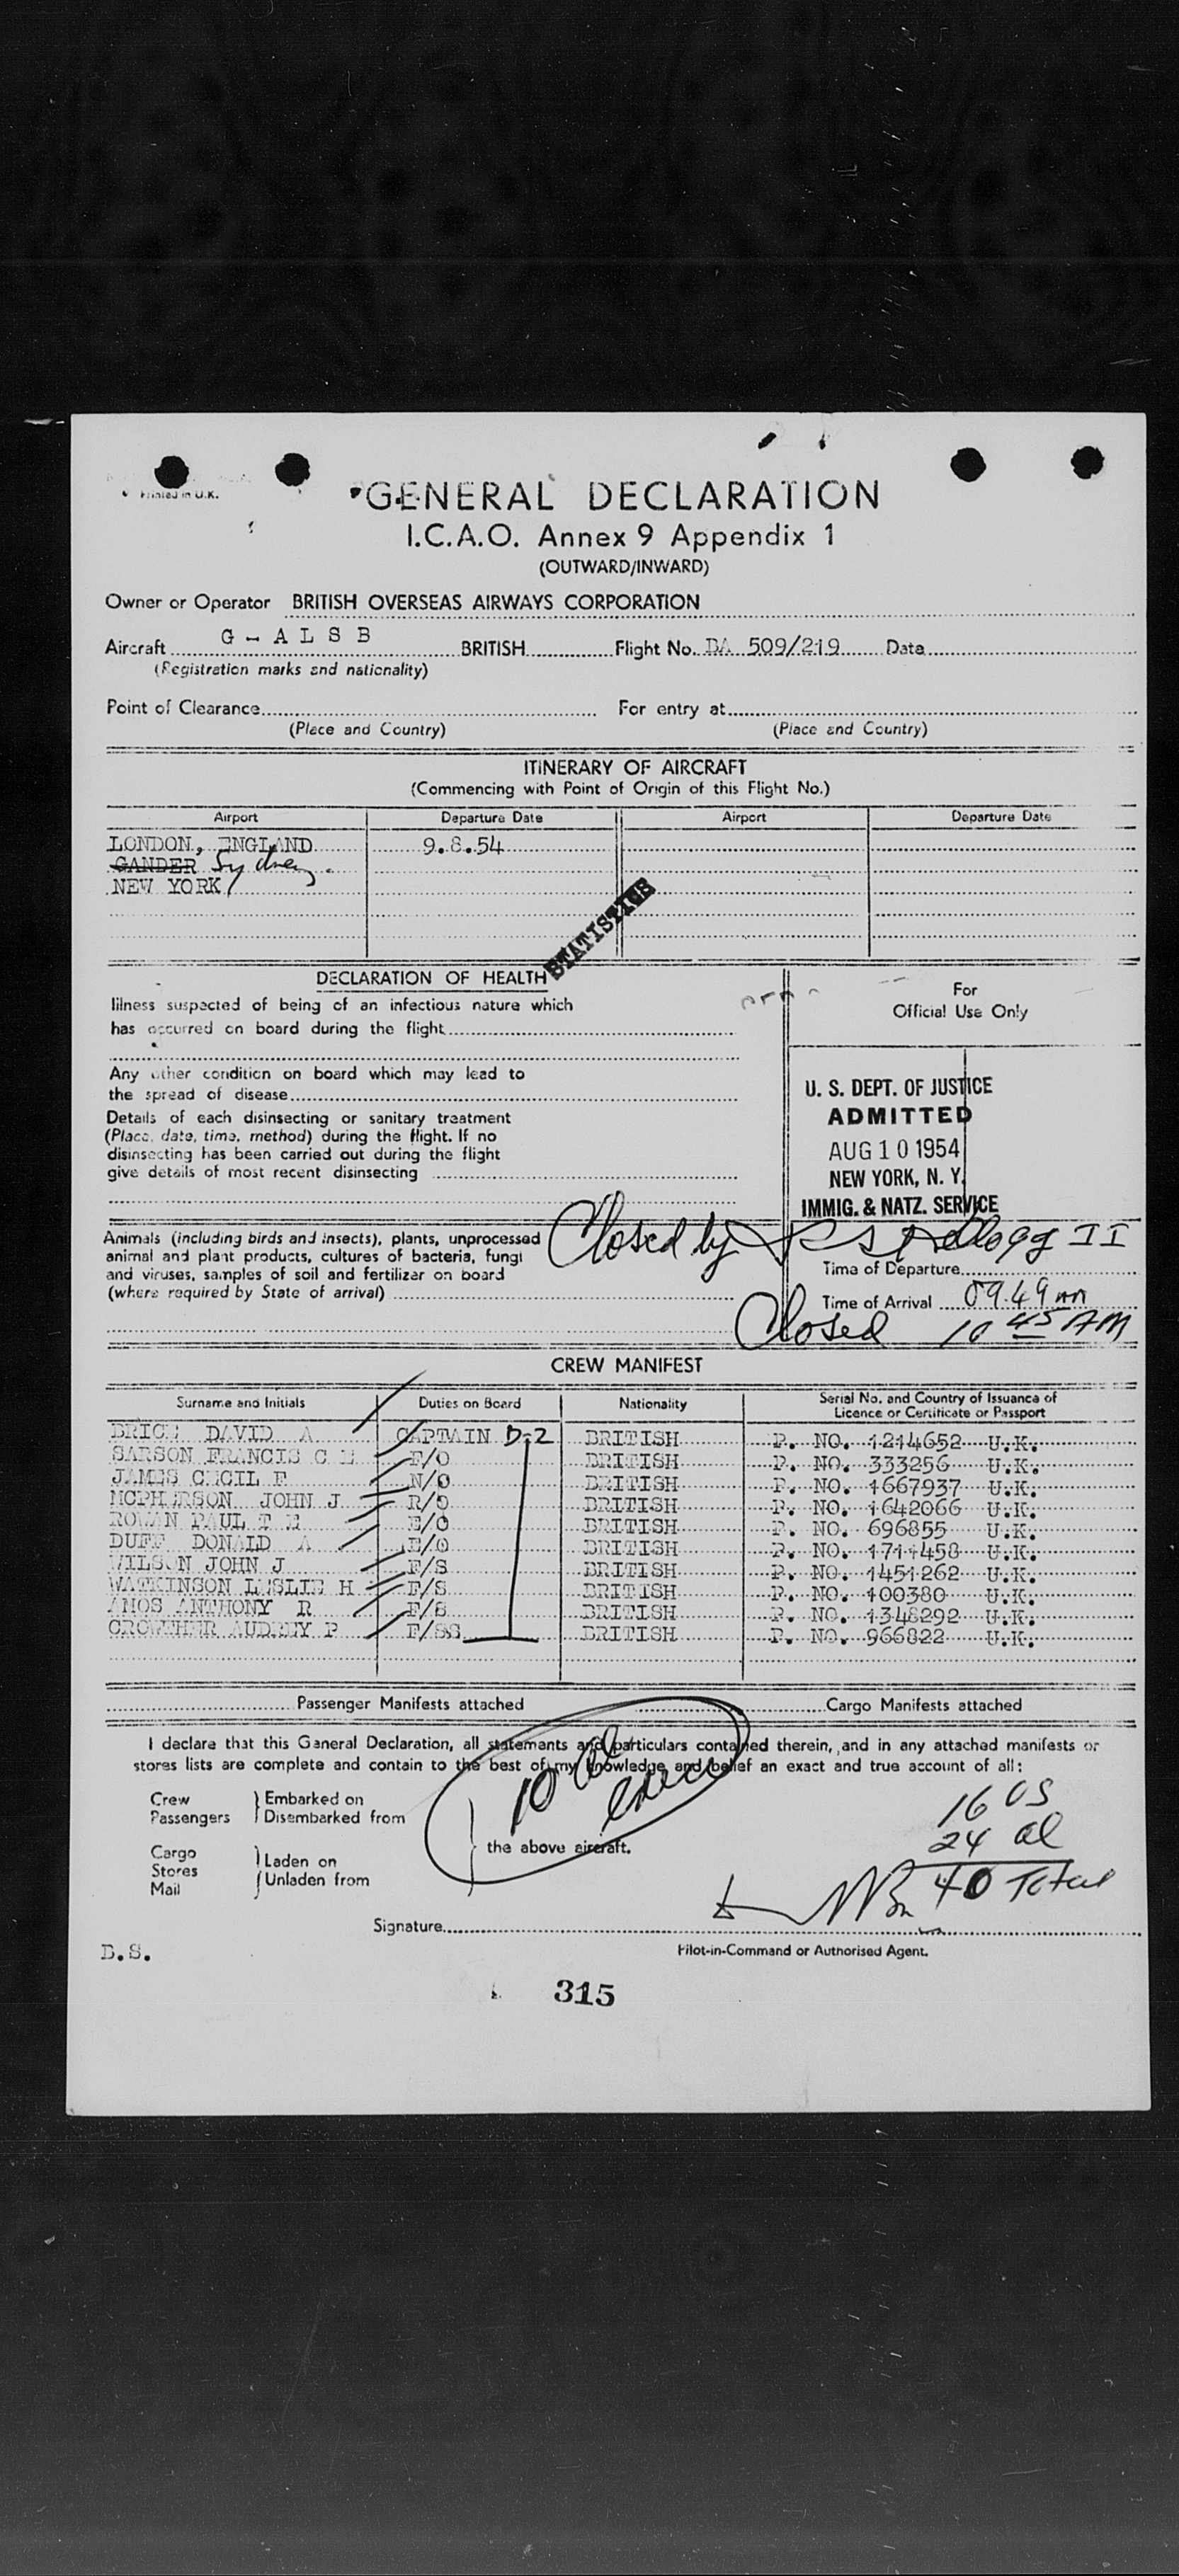 Printed in U.K.
GENERAL DECLARATION
I.C.A.O. Annex 9 Appendix 1
(OUTWARD/INWARD)
Owner or Operator BRITISH OVERSEAS AIRWAYS CORPORATION
Aircraft G - A L S B BRITISH Flight No. BA 509/219 Date
(Registration marks and nationality)
Point of Clearance For entry at
(Place and Country) (Place and Country)
ITINERARY OF AIRCRAFT
(Commencing with Point of Origin of this Flight No.)
Airport Departure Date Airport Departure Date
LONDON, ENGLAND 9.8.54
GANDER Sydney.
NEW YORK
STATISTICS
DECLARATION OF HEALTH
Illness suspected of being of an infectious nature which
has occurred on board during the flight
Any other condition on board which may lead to
the spread of disease
Details of each disinsecting or sanitary treatment
(Place, date, time, method) during the flight. If no
disinsecting has been carried out during the flight
give details of most recent disinsecting
For
Official Use Only
U. S. DEPT. OF JUSTICE
ADMITTED
AUG 10 1954
NEW YORK, N. Y.
IMMIG. & NATZ. SERVICE
Animals (including birds and insects), plants, unprocessed
animal and plant products, cultures of bacteria, fungi
and viruses, samples of soil and fertilizer on board
(where required by State of arrival)
Closed by Kellogg II
Time of Departure
Time of Arrival 09.49 am
Closed 10 45 AM
CREW MANIFEST
Surname and Initials Duties on Board Nationality Serial No. and Country of Issuance of
Licence or Certificate or Passport
BRICE DAVID A CAPTAIN D-2 BRITISH P. NO. 1214652 U.K.
SARSON FRANCIS C F/O BRITISH P. NO. 333256 U.K.
JAMES CECIL F N/O BRITISH P. NO. 1667937 U.K.
MCPHERSON JOHN J R/O BRITISH P. NO. 1642066 U.K.
ROWAN PAUL T E E/O BRITISH P. NO. 696855 U.K.
DUFF DONALD A E/O BRITISH P. NO. 1711458 U.K.
WILSON JOHN J F/S BRITISH P. NO. 1451262 U.K.
WATKINSON LESLIE H F/S BRITISH P. NO. 100380 U.K.
AMOS ANTHONY R F/S BRITISH P. NO. 1348292 U.K.
CROWTHER AUDREY P F/SS BRITISH P. NO. 966822 U.K.
Passenger Manifests attached Cargo Manifests attached
I declare that this General Declaration, all statements and particulars contained therein, and in any attached manifests or
stores lists are complete and contain to the best of my knowledge and belief an exact and true account of all:
Crew Embarked on
Passengers Disembarked from
Cargo Laden on
Stores Unladen from
Mail
the above aircraft.
10 al
crew
16 US
24 al
40 Total
Signature
Pilot-in-Command or Authorised Agent.
D.S.
315